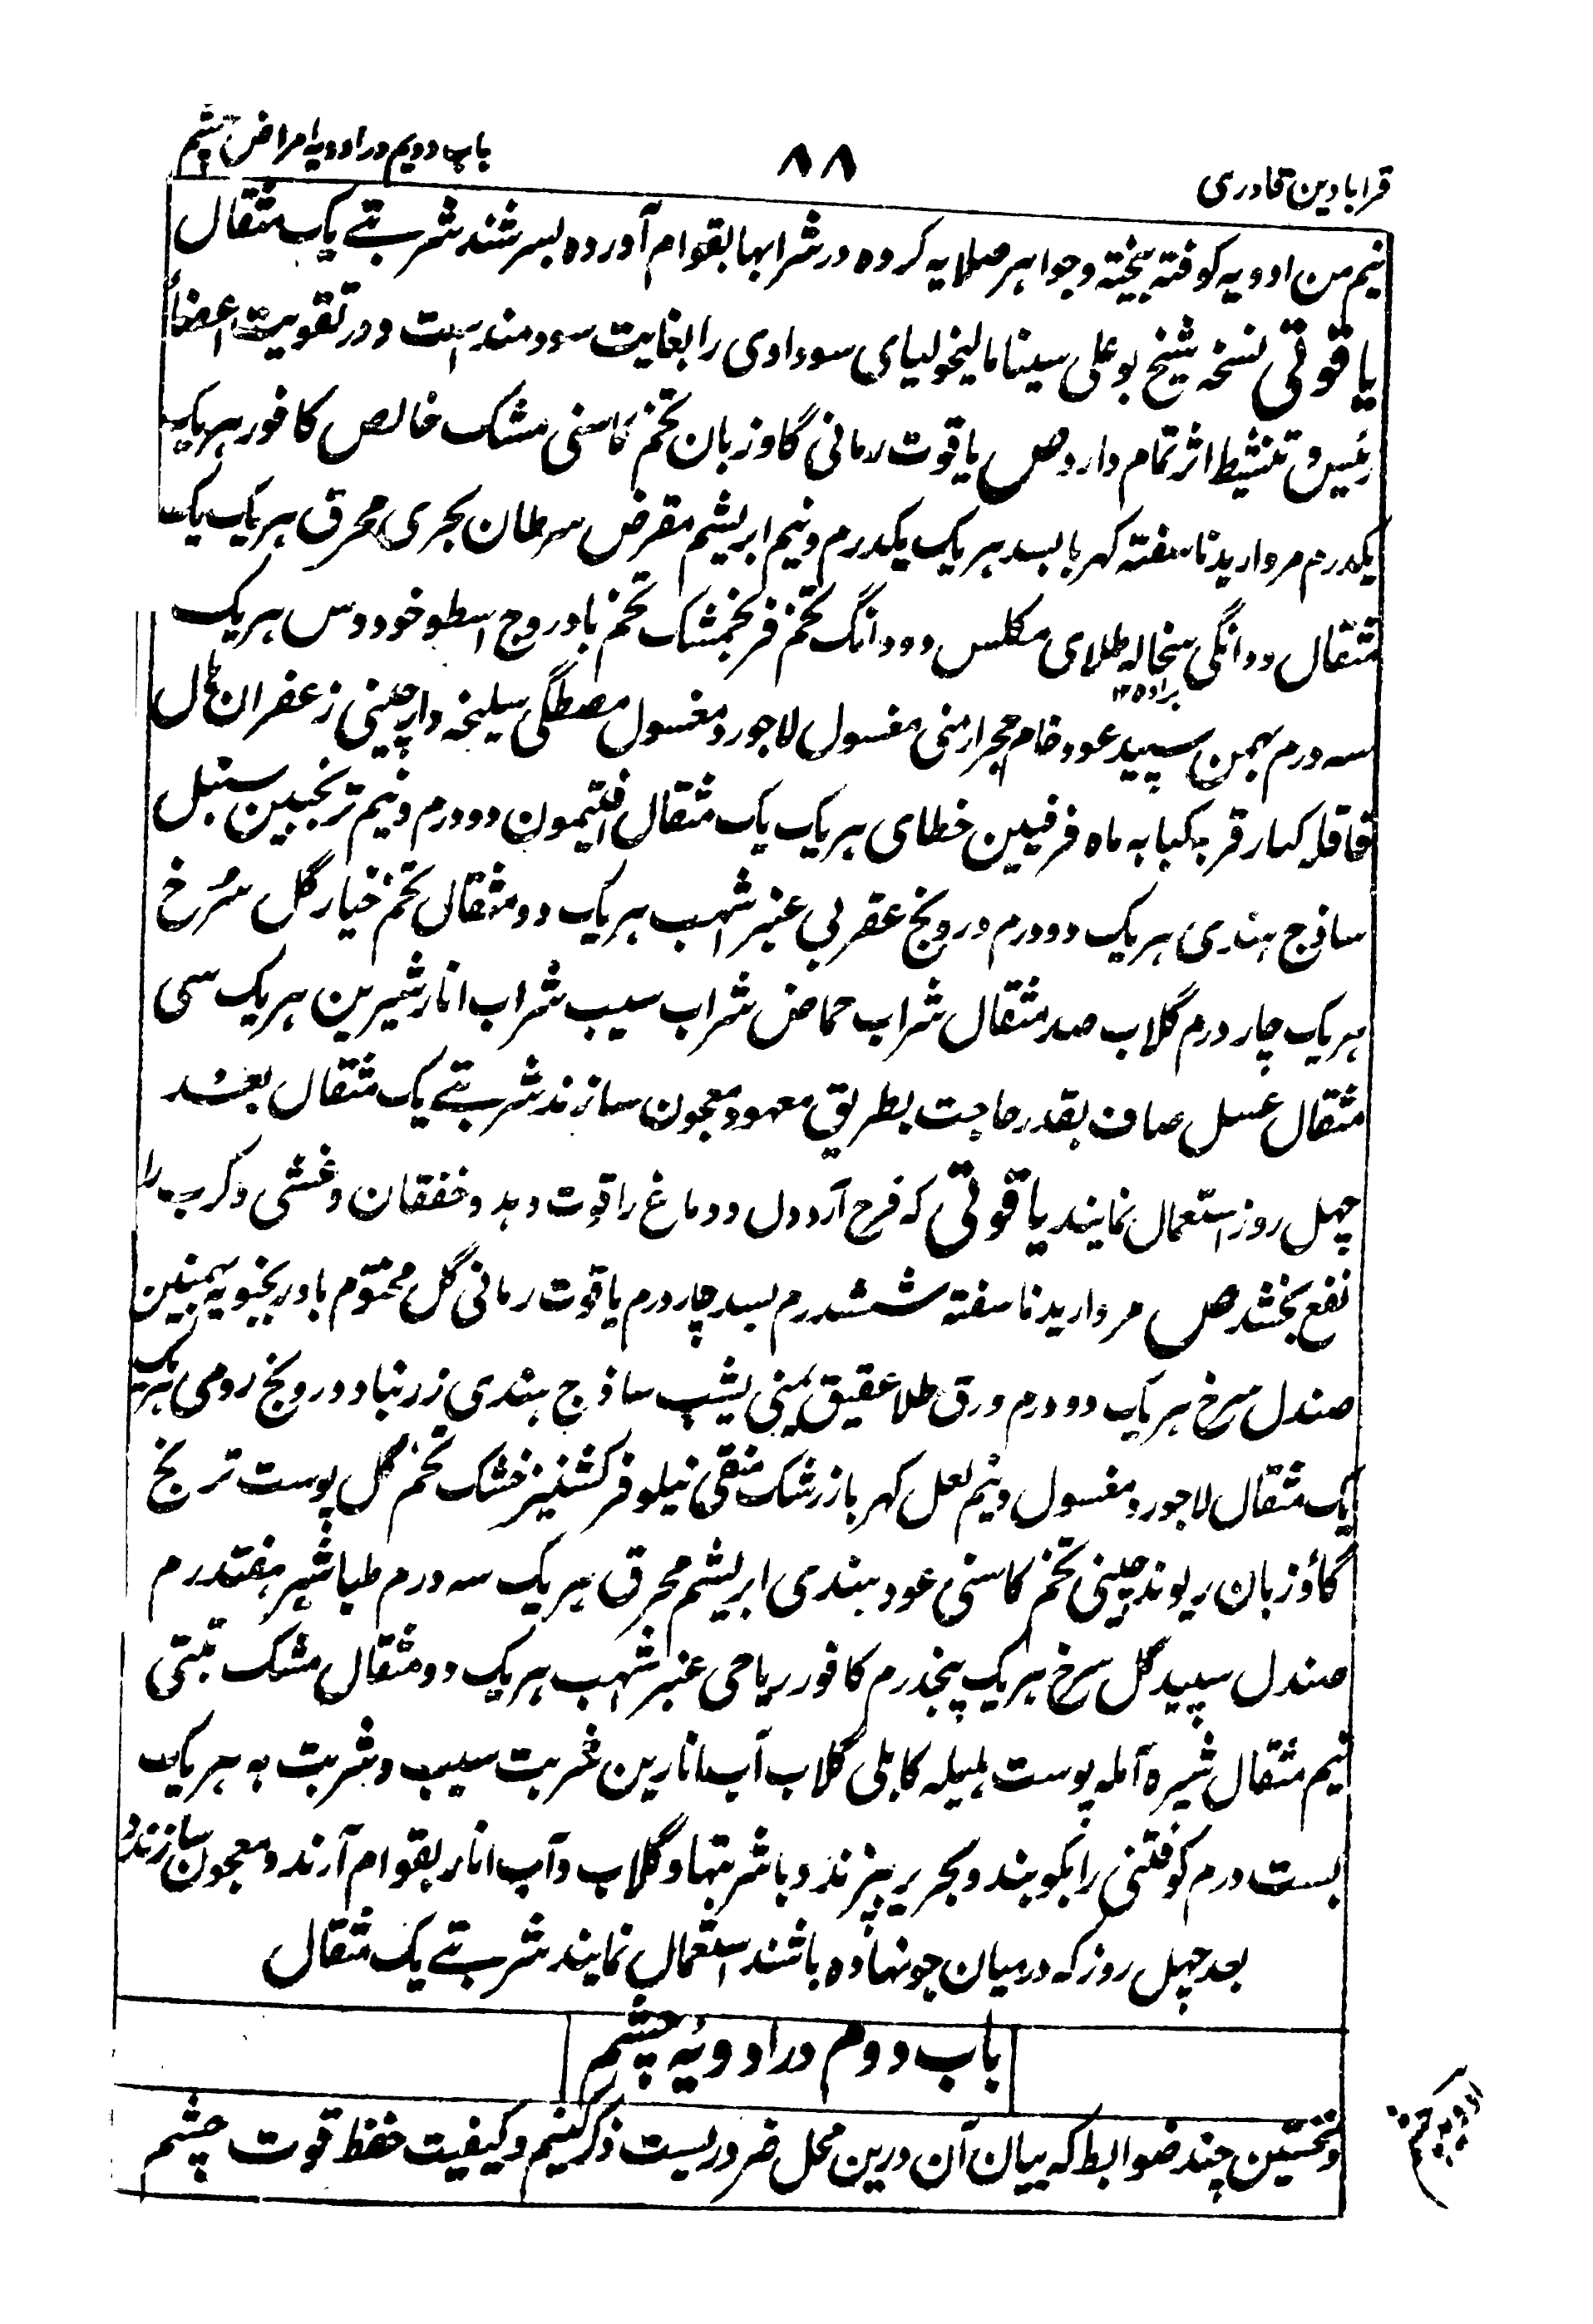 قرابادین قادری
۸۸
باب دویم در ادویه امراض چشم
نیم من ادویه کوفته بیخته و جواهر صلایه کرده در شرابها بقوام آورده بسرشند شربتے یک مثقال
یاقوتی نسخه شیخ بو علی سینا مالیخولیای سوداوی را بغایت سودمند است و در تقویت اعضأ
رئیس و تنشیط اثر تمام دارد ص یاقوت رمانی گاوزبان تخم کاسنی مشک خالص کافور هریک
یکدرم مروارید ناسفته کهربا بسد هریک یکدرم و نیم ابریشم مقرض سرطان بحری محرق هریک یک
مثقال ودانگی سخاله طلای مکلس دو دانگ تخم فرنجمشک تخم بادروج اسطوخودوس هریک
براده ۱۲
سه درم بهمن سپید عود خام حجر ارمنی مغسول لاجورد مغسول مصطگی سلیخه دارچینی زعفران هال
قاقله کبار قرفه کبابه ماه فرفین خطای هریک یک مثقال افتیمون دو درم و نیم ترنجبین سنبل
ساذج هندی هریک دو درم درونج عقربی عنبر اشهب هریک دو مثقال تخم خیار گل سُرخ
هریک چار درم گلاب صد مثقال شراب حماض شراب سیب شراب انار شیرین هریک سی
مثقال عسل صاف بقدر حاجت بطریق معهود معجون سازند شربتے یک مثقال بعد
چهل روز استعمال نمایند یاقوتی که فرح آرد دل و دماغ را قوت دهد و خفقان و غشی و کرب را
نفع بخشد ص مروارید ناسفته ششدرم بسد چار درم یاقوت رمانی گل مختوم بادرنجبویه بهمنین
صندل سرخ هریک دو درم ورق طلا عقیق یمنی یشب ساذج هندی زرنباد درونج رومی هریک
یک مثقال لاجورد مغسول و نیم لعل کهربا زرشک منقی نیلوفر کشنیز خشک تخم گل پوست ترنج
گاؤزبان ریوند چینی تخم کاسنی عود هندی ابریشم محرق هریک سه درم طباشیر هفتدرم
صندل سپید گل سرخ هریک پنجدرم کافور ریاحی عنبر شهب هریک دو مثقال مشک تبتی
نیم مثقال شیره آمله پوست هلیله کابلی گلاب آب انارین شربت سیب و شربت به هریک
بست درم کوفتنی را بکوبند و بحریر بیزند و با شربتها و گلاب و آب انار بقوام آرند و معجون سازند و
بعد چهل روز که درمیان جو نهاده باشند استعمال نمایند شربتے یک مثقال
باب دوم در ادویهٔ چشم
و نخستین چند ضوابط که بیان آن درین محل ضروریست ذکر کنیم و کیفیت حفظ قوت چشم
ادویه چشم